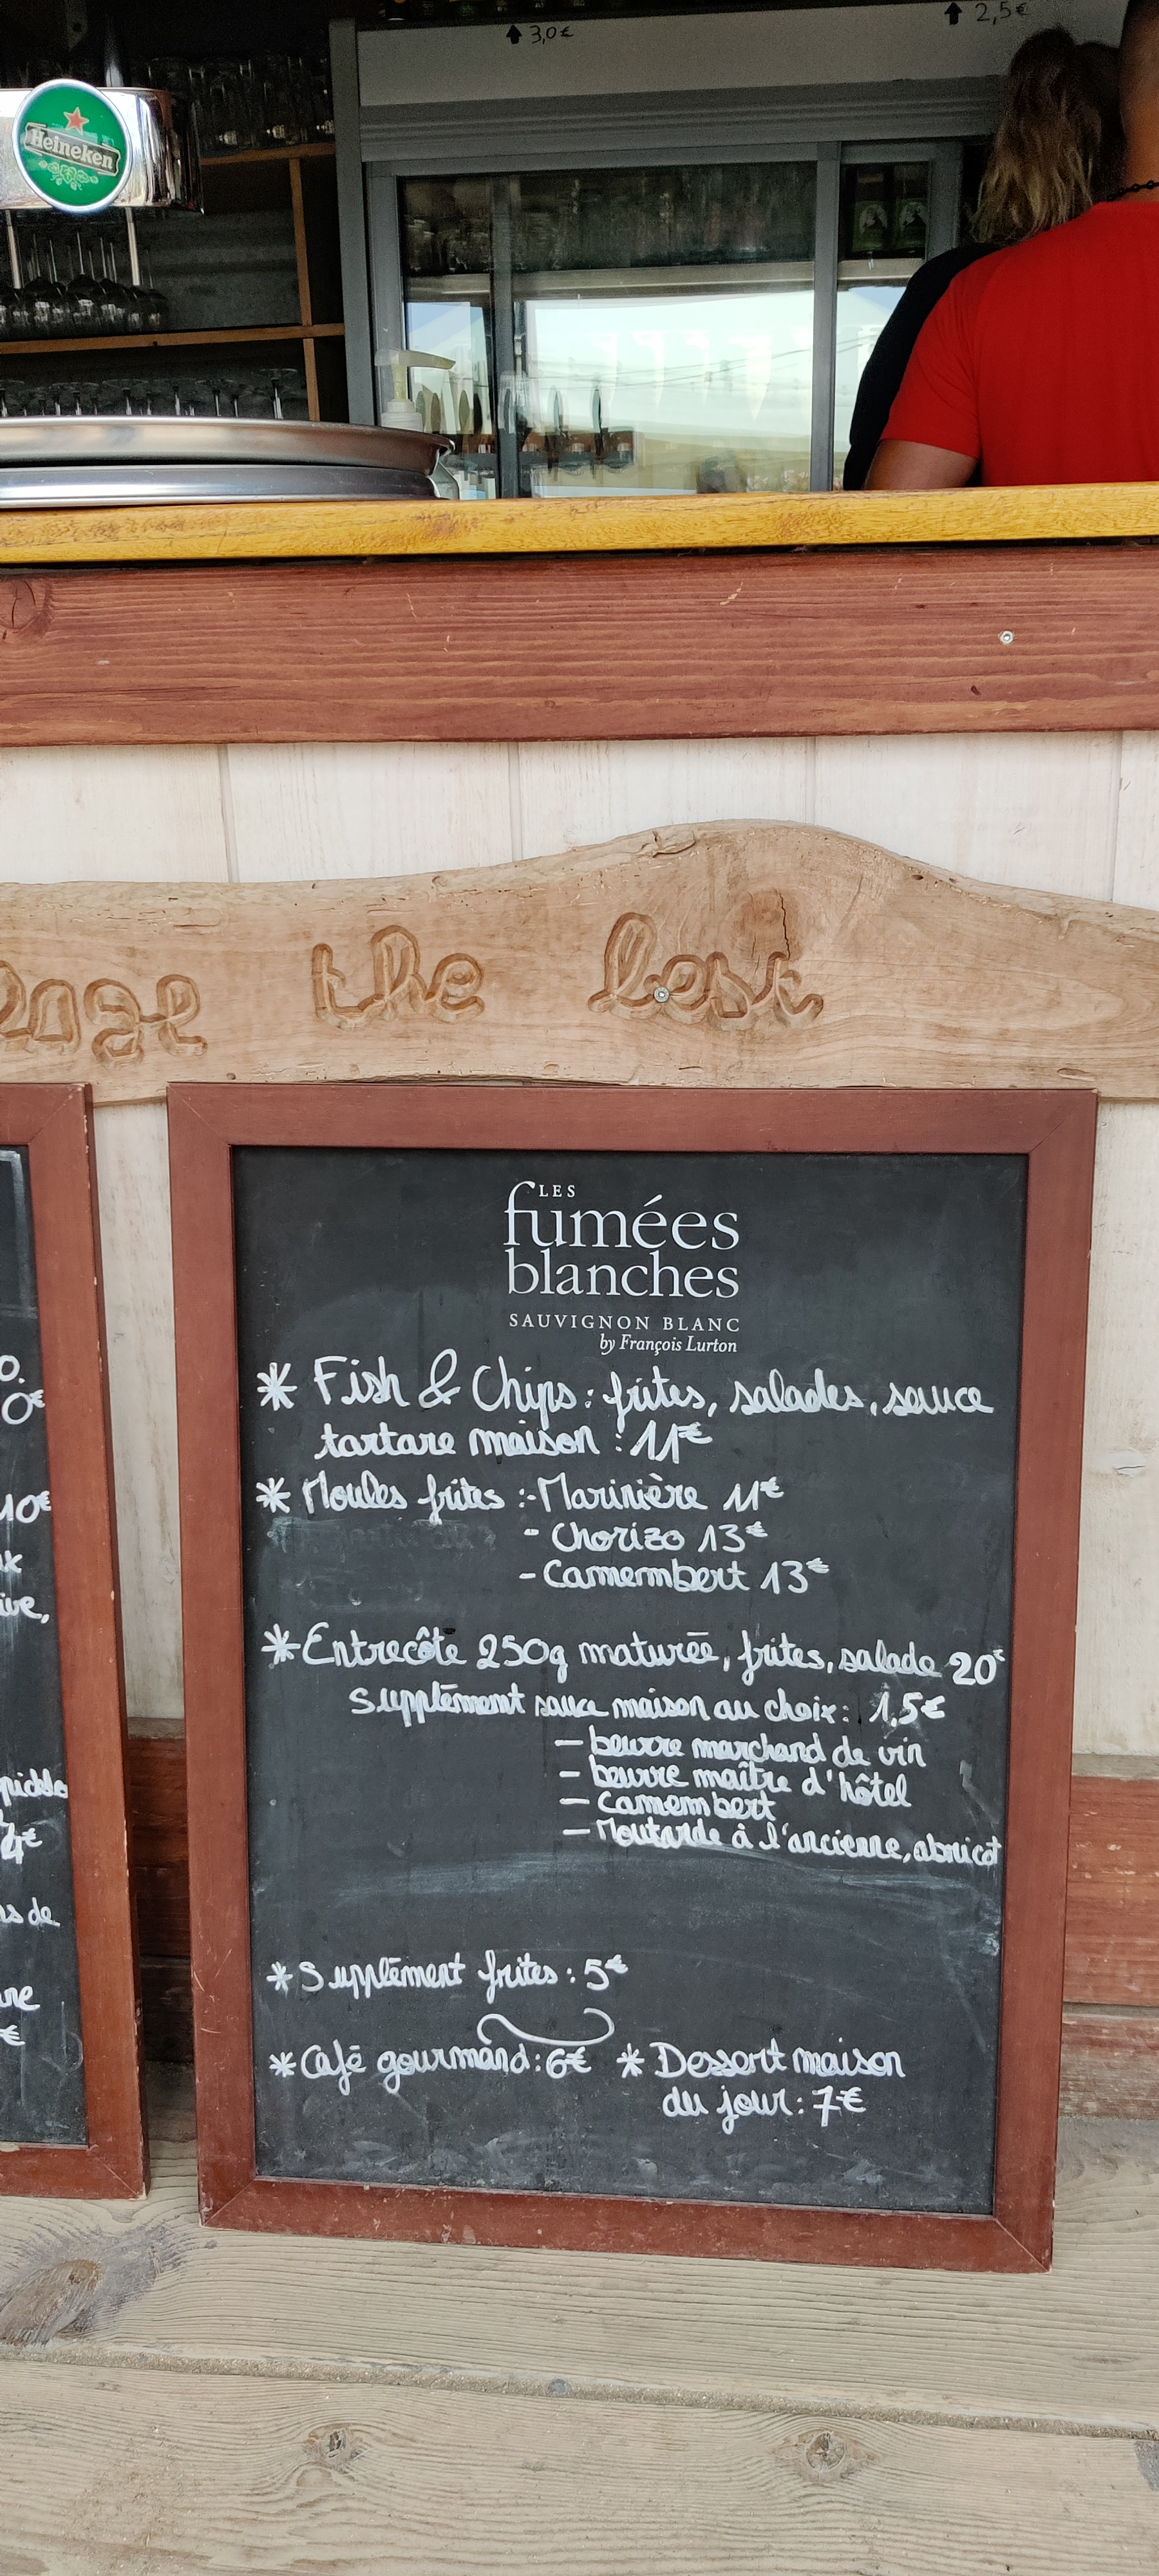 3,0€
2,5€
Heineken
the best
LES
fumées
blanches
SAUVIGNON BLANC
by François Lurton
* Fish & Chips : frites, salades, sauce
tartare maison : 11€
* Moules frites : - Marinière 11€
- Chorizo 13€
- Camembert 13€
* Entrecôte 250g maturée, frites, salade 20€
Supplément sauce maison au choix : 1,5€
- beurre marchand de vin
- beurre maître d'hôtel
- Camembert
- Moutarde à l'ancienne, abricot
* Supplément frites : 5€
* Café gourmand : 6€ * Dessert maison
du jour : 7€
0€
10€
4€
s de
€